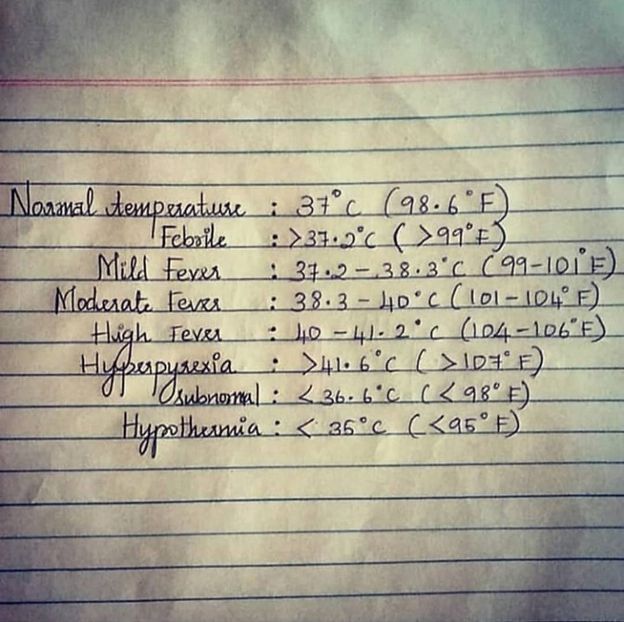 Normal temperature : 37°C (98.6°F)
Febrile : >37.2°C (>99°F)
Mild Fever : 37.2 - 38.3°C (99-101°F)
Moderate Fever : 38.3 - 40°C (101-104°F)
High Fever : 40 - 41.2°C (104-106°F)
Hyperpyrexia : >41.6°C (>107°F)
subnormal : <36.6°C (<98°F)
Hypothermia : < 35°C (<95°F)